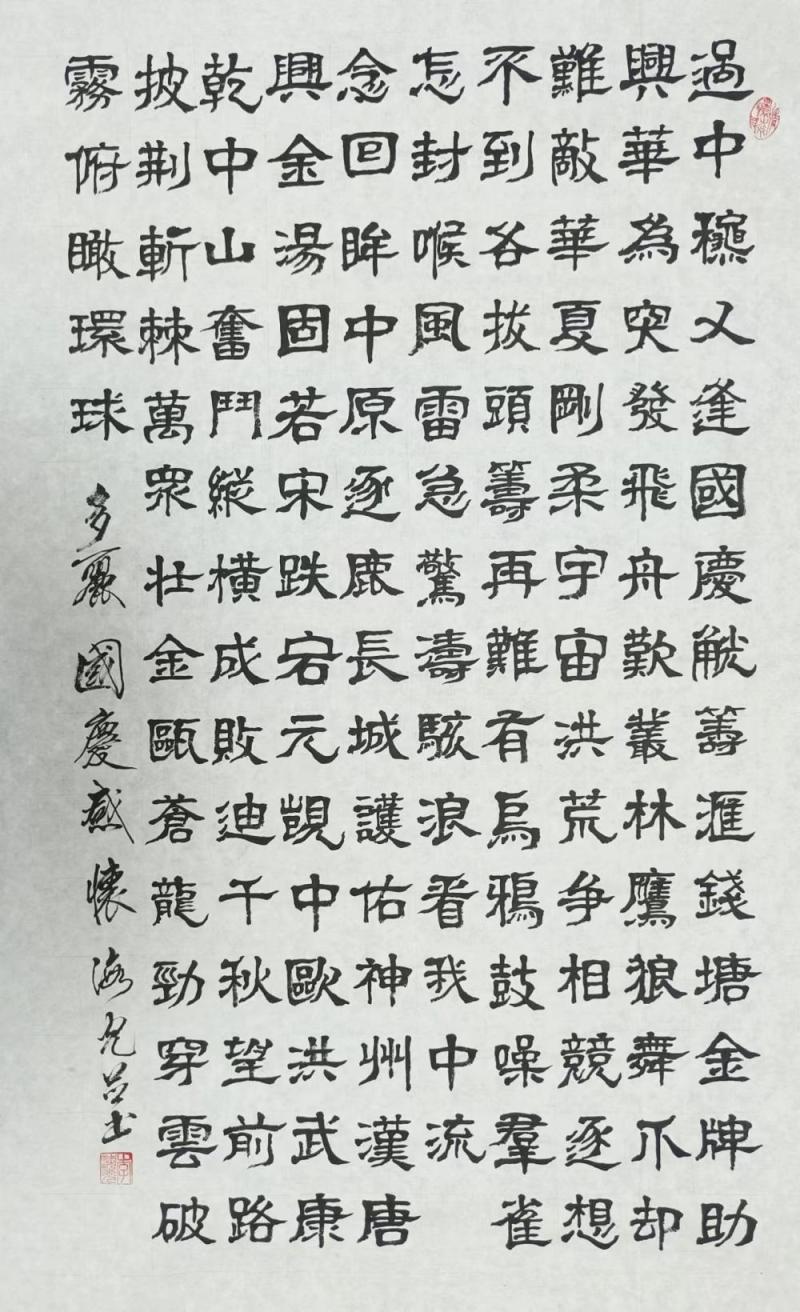 過中穐又逢國慶觥籌滙錢塘金牌助
興華為突發飛舟歎叢林鷹狼舞爪却
難敵華夏剛柔宇宙洪荒争相競逐想
不到各拔頭籌再難有烏鴉鼓噪羣雀
怎封喉風雷急驚濤駭浪看我中流
念回眸中原逐鹿長城護佑神州漢唐
興金湯固若宋跌宕元覬中歐洪武康
乾中山奮鬥縱横成敗迪千秋望前路
披荆斬棘萬衆壯金甌蒼龍勁穿雲破
霧俯瞰環球
多麗國慶感懷海允吕书